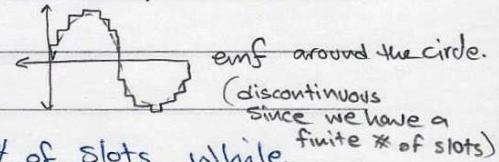 emf around the circle.
(discontinuous
since we have a
finite # of slots)
# of slots while